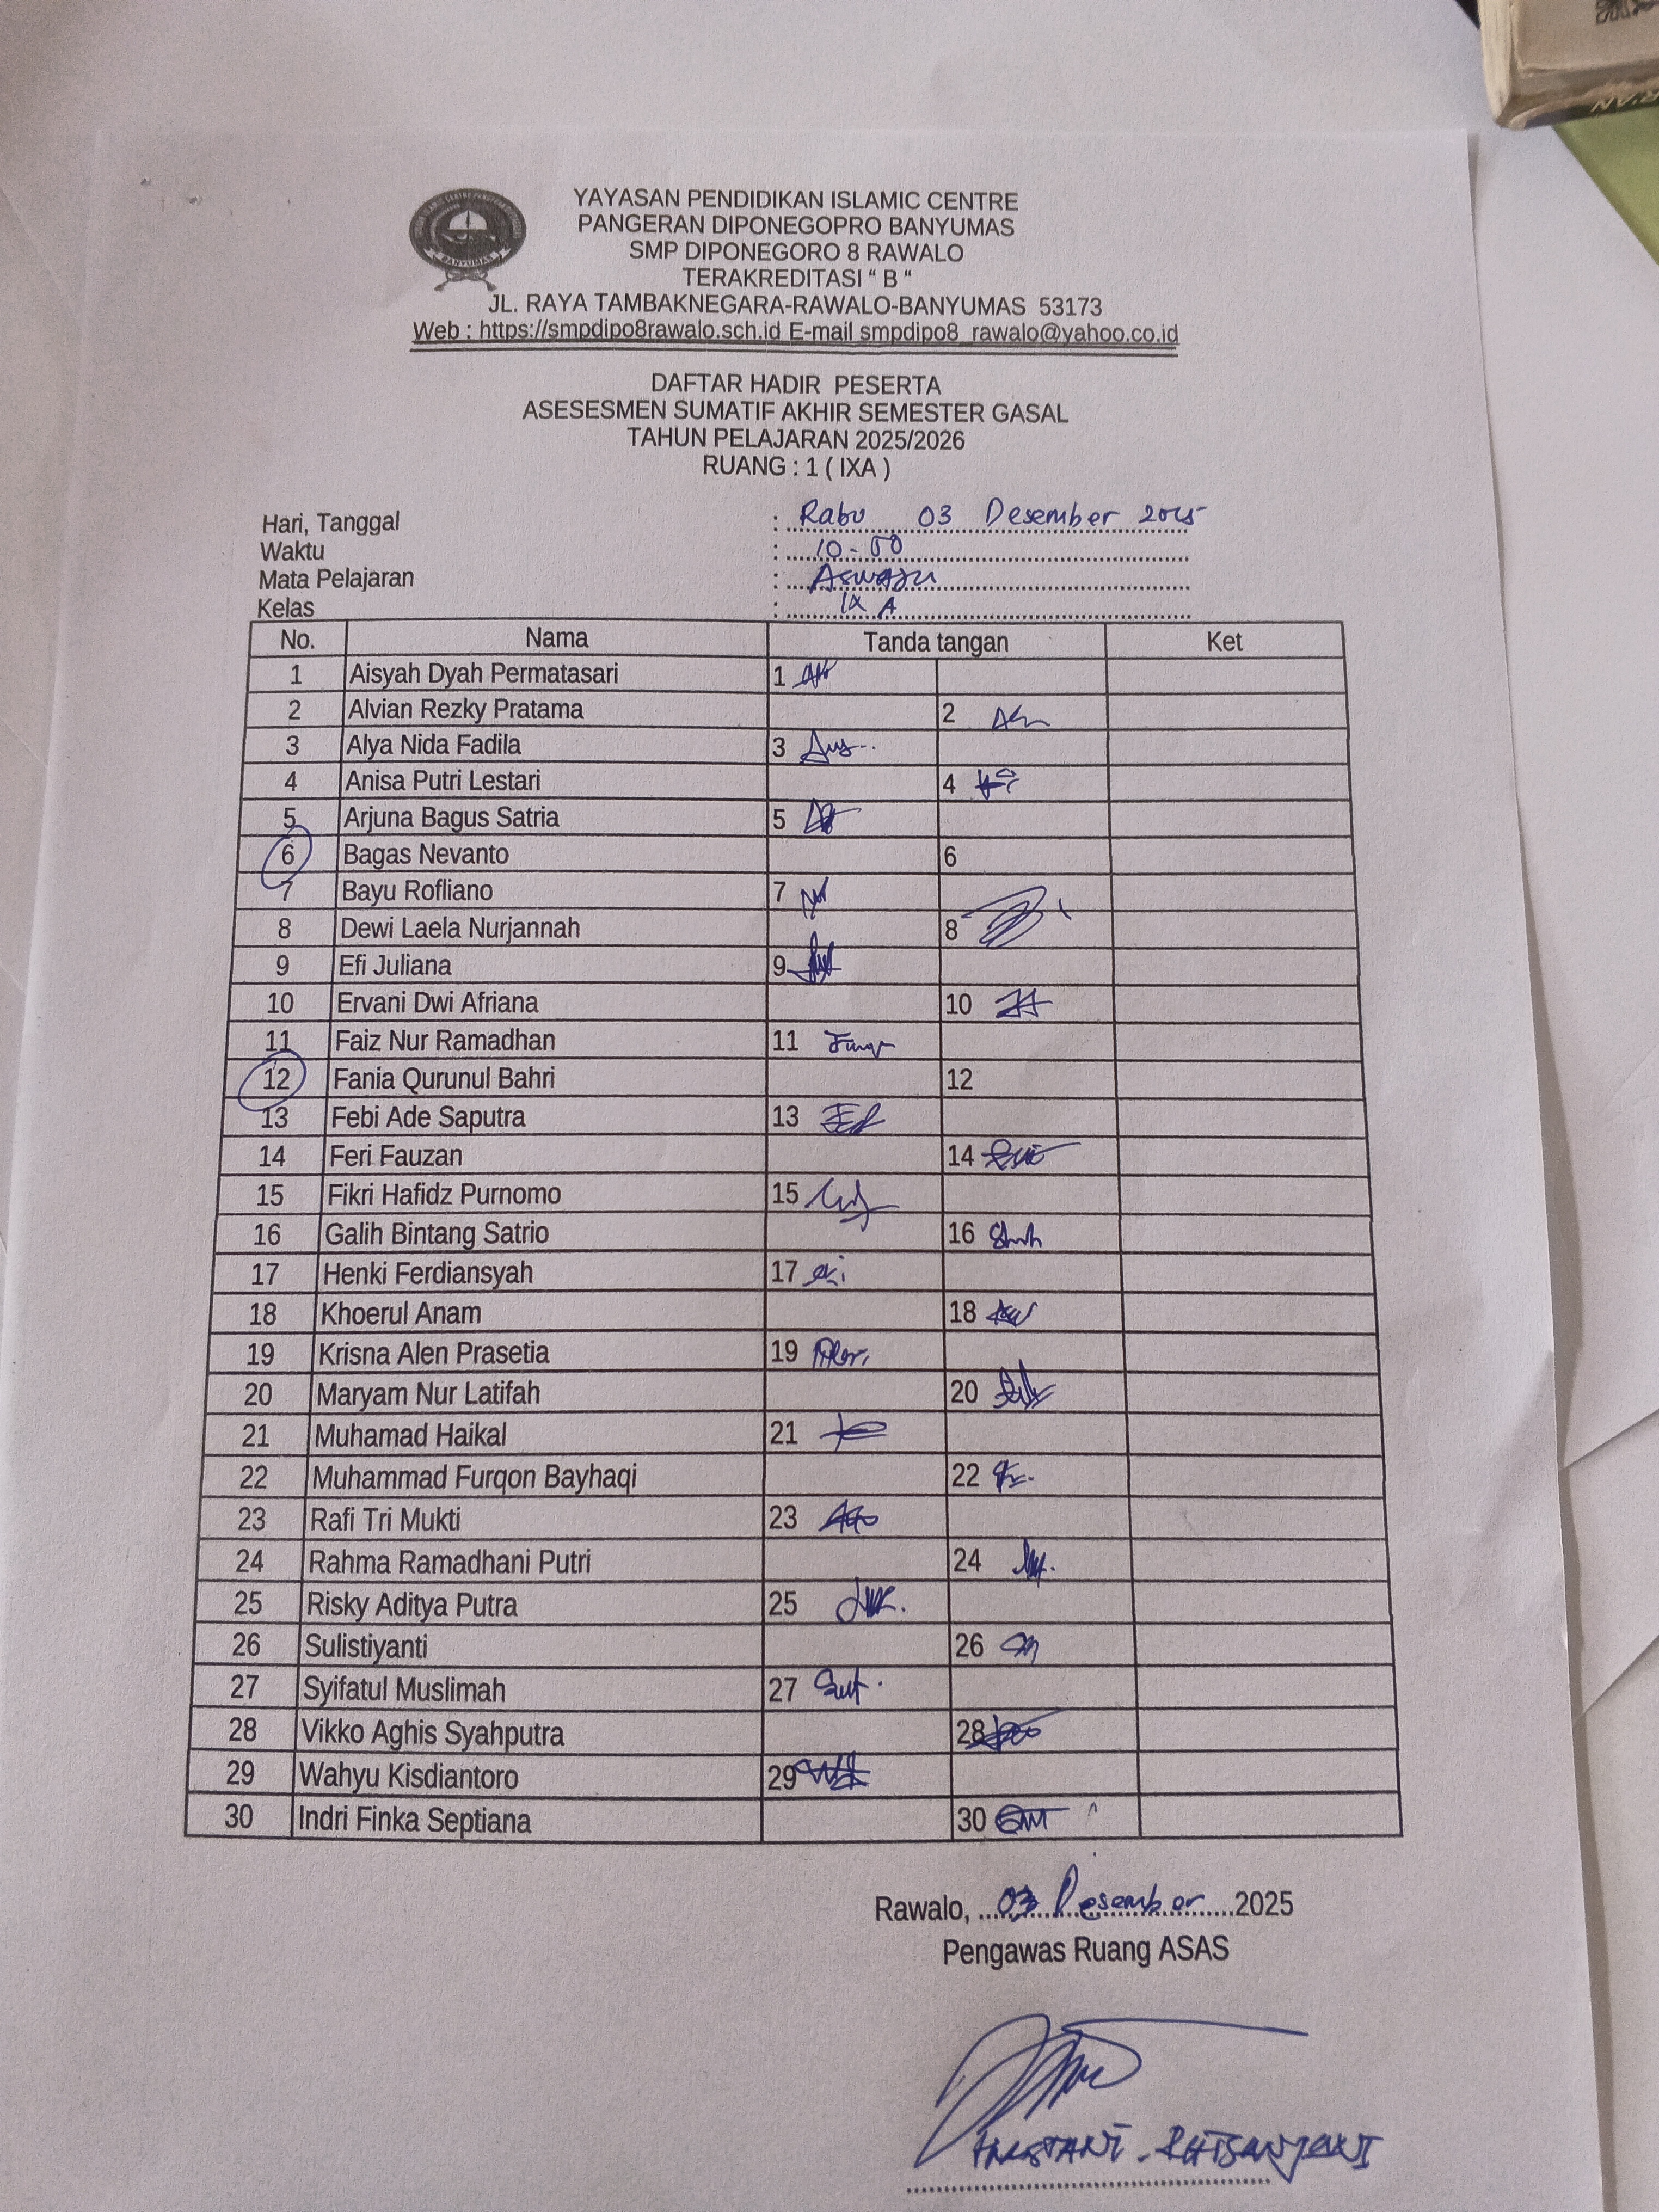 YAYASAN PENDIDIKAN ISLAMIC CENTRE
PANGERAN DIPONEGOPRO BANYUMAS
SMP DIPONEGORO 8 RAWALO
TERAKREDITASI “ B “
JL. RAYA TAMBAKNEGARA-RAWALO-BANYUMAS 53173
Web : https://smpdipo8rawalo.sch.id E-mail smpdipo8_rawalo@yahoo.co.id
BANYUMAS
DAFTAR HADIR PESERTA
ASESESMEN SUMATIF AKHIR SEMESTER GASAL
TAHUN PELAJARAN 2025/2026
RUANG : 1 ( IXA )
Hari, Tanggal : Rabu 03 Desember 2025
Waktu : 10-00
Mata Pelajaran : Aswaja
Kelas : IX A
No. Nama Tanda tangan Ket
1 Aisyah Dyah Permatasari 1
2 Alvian Rezky Pratama 2
3 Alya Nida Fadila 3
4 Anisa Putri Lestari 4
5 Arjuna Bagus Satria 5
6 Bagas Nevanto 6
7 Bayu Rofliano 7
8 Dewi Laela Nurjannah 8
9 Efi Juliana 9
10 Ervani Dwi Afriana 10
11 Faiz Nur Ramadhan 11
12 Fania Qurunul Bahri 12
13 Febi Ade Saputra 13
14 Feri Fauzan 14
15 Fikri Hafidz Purnomo 15
16 Galih Bintang Satrio 16
17 Henki Ferdiansyah 17
18 Khoerul Anam 18
19 Krisna Alen Prasetia 19
20 Maryam Nur Latifah 20
21 Muhamad Haikal 21
22 Muhammad Furqon Bayhaqi 22
23 Rafi Tri Mukti 23
24 Rahma Ramadhani Putri 24
25 Risky Aditya Putra 25
26 Sulistiyanti 26
27 Syifatul Muslimah 27
28 Vikko Aghis Syahputra 28
29 Wahyu Kisdiantoro 29
30 Indri Finka Septiana 30
Rawalo, 03 Desember 2025
Pengawas Ruang ASAS